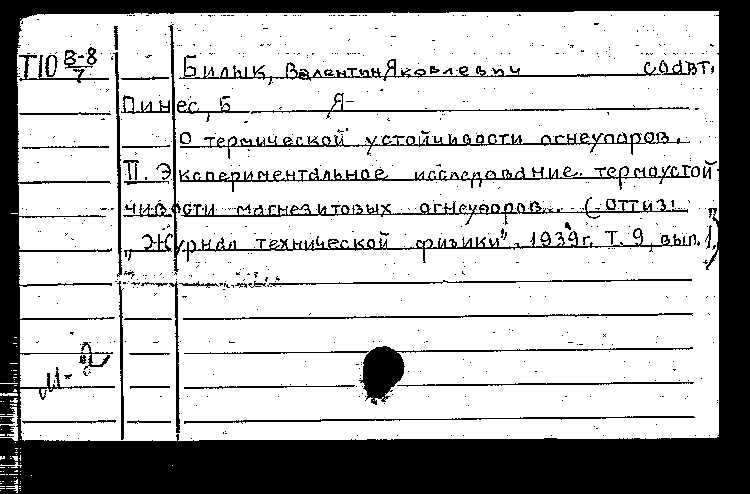 Т10 В-8/7 Билык, Валентин Яковлевич соавт.
Пинес, Б Я-
О термической устойчивости огнеупоров.
II. Экспериментальное исследование термоустой-
чивости магнезитовых огнеупоров. (-оттиз:
„Журнал технической физики", 1939г. Т. 9, вып. 1.)